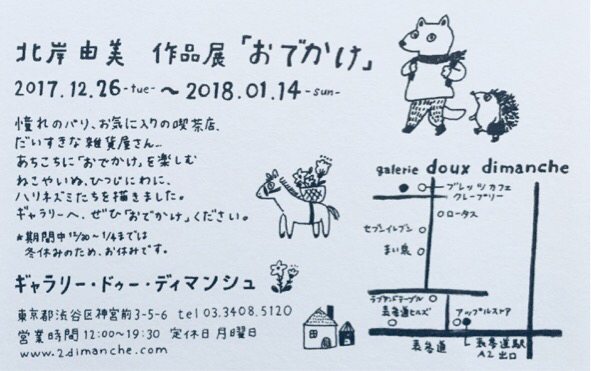 北岸由美 作品展「おでかけ」
2017.12.26-tue-〜2018.01.14-sun-
憧れのパリ、お気に入りの喫茶店、
だいすきな雑貨屋さん…
あちこちに「おでかけ」を楽しむ
ねこやいぬ、ひつじにわに、
ハリネズミたちを描きました。
ギャラリーへ、ぜひ「おでかけ」ください。
*期間中12/30〜1/4までは
冬休みのため、お休みです。
ギャラリー・ドゥー・ディマンシュ
東京都渋谷区神宮前3-5-6 tel 03.3408.5120
営業時間 12:00〜19:30 定休日 月曜日
www.2dimanche.com
galerie doux dimanche
ブレッツカフェ
クレープリー
ロータス
セブンイレブン
まい泉
表参道ヒルズ
アップルストア
表参道
表参道駅
A2出口